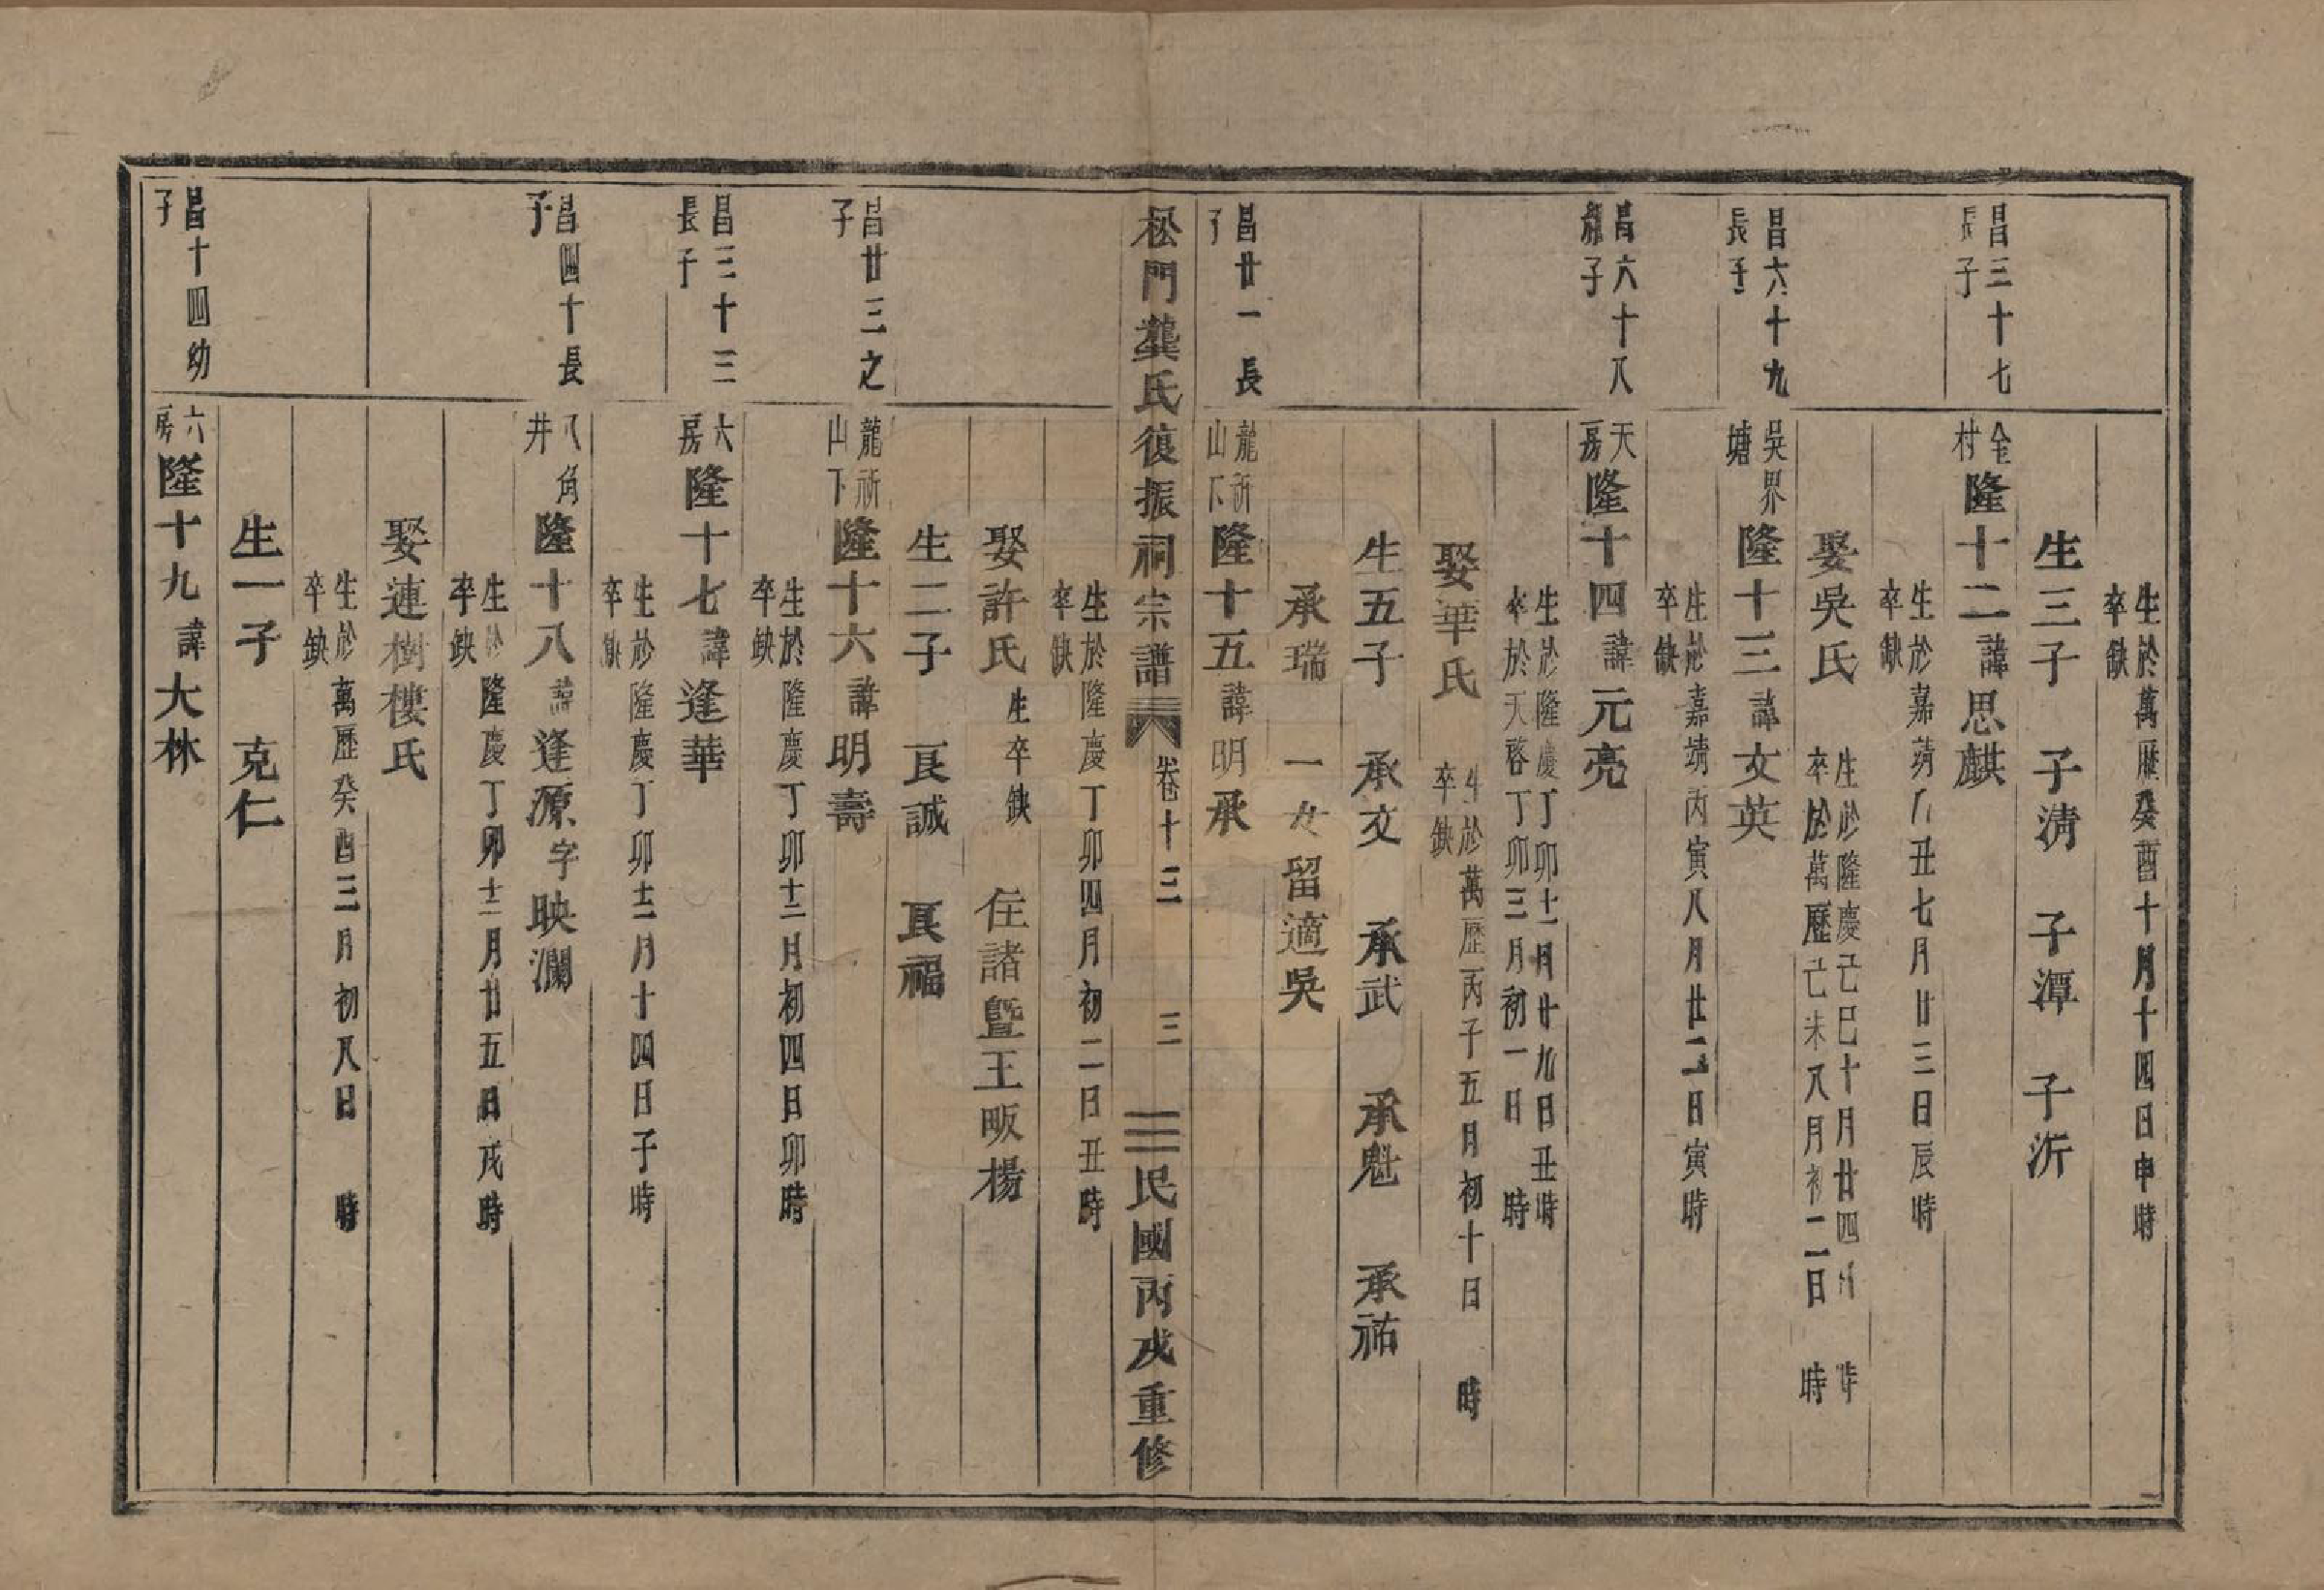 生於萬歷癸酉十月十四日申時
卒缺
生三子　子清　子潭　子沂
昌三十七
長子
金
村
隆十二諱思麒
生於嘉靖丑七月廿三日辰時
卒缺
娶吳氏
生於隆慶己巳十月廿四日　時
卒於萬歷己未八月初二日　時
昌六十九
長子
吳界
塘
隆十三諱文英
生於嘉靖丙寅八月廿二日寅時
卒缺
昌六十八
龍子
天
房
隆十四諱元亮
生於隆慶丁卯十一月廿九日丑時
卒於天啓丁卯三月初一日　時
娶華氏
生於萬歷丙子五月初十日　時
卒缺
生五子　承文　承武　承魁　承祐
承瑞　一女留適吳
昌廿一長
子
龍祈
山下
隆十五諱明承
松門龔氏復振祠宗譜　卷十三　三　民國丙戌重修
生於隆慶丁卯四月初二日丑時
卒缺
娶許氏生卒缺　住諸暨王畈楊
生二子　良誠　良福
昌廿三之
子
龍祈
山下
隆十六諱明壽
生於隆慶丁卯十二月初四日卯時
卒缺
昌三十三
長子
六
房
隆十七諱逢華
生於隆慶丁卯十二月十四日子時
卒缺
昌四十長
子
八角
井
隆十八諱逢源字映瀾
生於隆慶丁卯十二月廿五日戌時
卒缺
娶連樹樓氏
生於萬歷癸酉三月初八日　時
卒缺
生一子　克仁
昌十四幼
子
六
房
隆十九諱大林